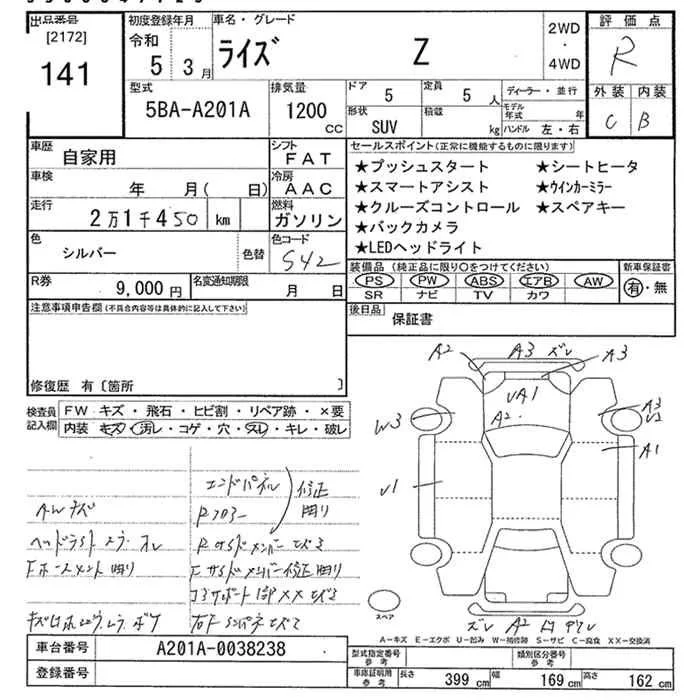 出品番号 [2172] 141
初度登録年月 令和 5年 3月
車名・グレード ライズ Z
2WD・4WD
評価点 R
外装 C 内装 B
型式 5BA-A201A
排気量 1200 CC
ドア 5 定員 5人
形状 SUV 積載 kg
ディーラー・並行
モデル年式 年
ハンドル 左・右
車歴 自家用
シフト FAT
車検 年 月( 日)
冷房 AAC
走行 2万1千450 km
燃料 ガソリン
色 シルバー 色替
色コード S42
R券 9,000円
名変通知期限 月 日
セールスポイント(正常に機能するものに限ります)
★プッシュスタート ★シートヒータ
★スマートアシスト ★ウインカーミラー
★クルーズコントロール ★スペアキー
★バックカメラ
★LEDヘッドライト
装備品 (純正品に限り○をつけてください) 新車保証書
PS PW ABS エアB AW 有・無
SR ナビ TV カワ
後日品 保証書
注意事項申告欄(不具合内容等は具体的に記入して下さい)
修復歴 有〔箇所 〕
検査員記入欄 FW キズ・飛石・ヒビ割・リペア跡・×要
内装 キズ・汚レ・コゲ・穴・スレ・キレ・破レ
エンドパネル 修正
AWキズ Rフロアー 曲り
RサイドメンバーエクU
A2 A3 ズレ A3
UA1
A2
W3 A3
U2
A1
U1
スペア
ズレ A2
A-キズ E-エクボ U-凹み W-補修跡 S-サビ C-腐食 XX-交換済
車台番号 A201A-0038238
登録番号
型式指定番号 参考 類別区分番号 参考
車庫証明用 参考 長さ 399 cm 幅 169 cm 高さ 162 cm